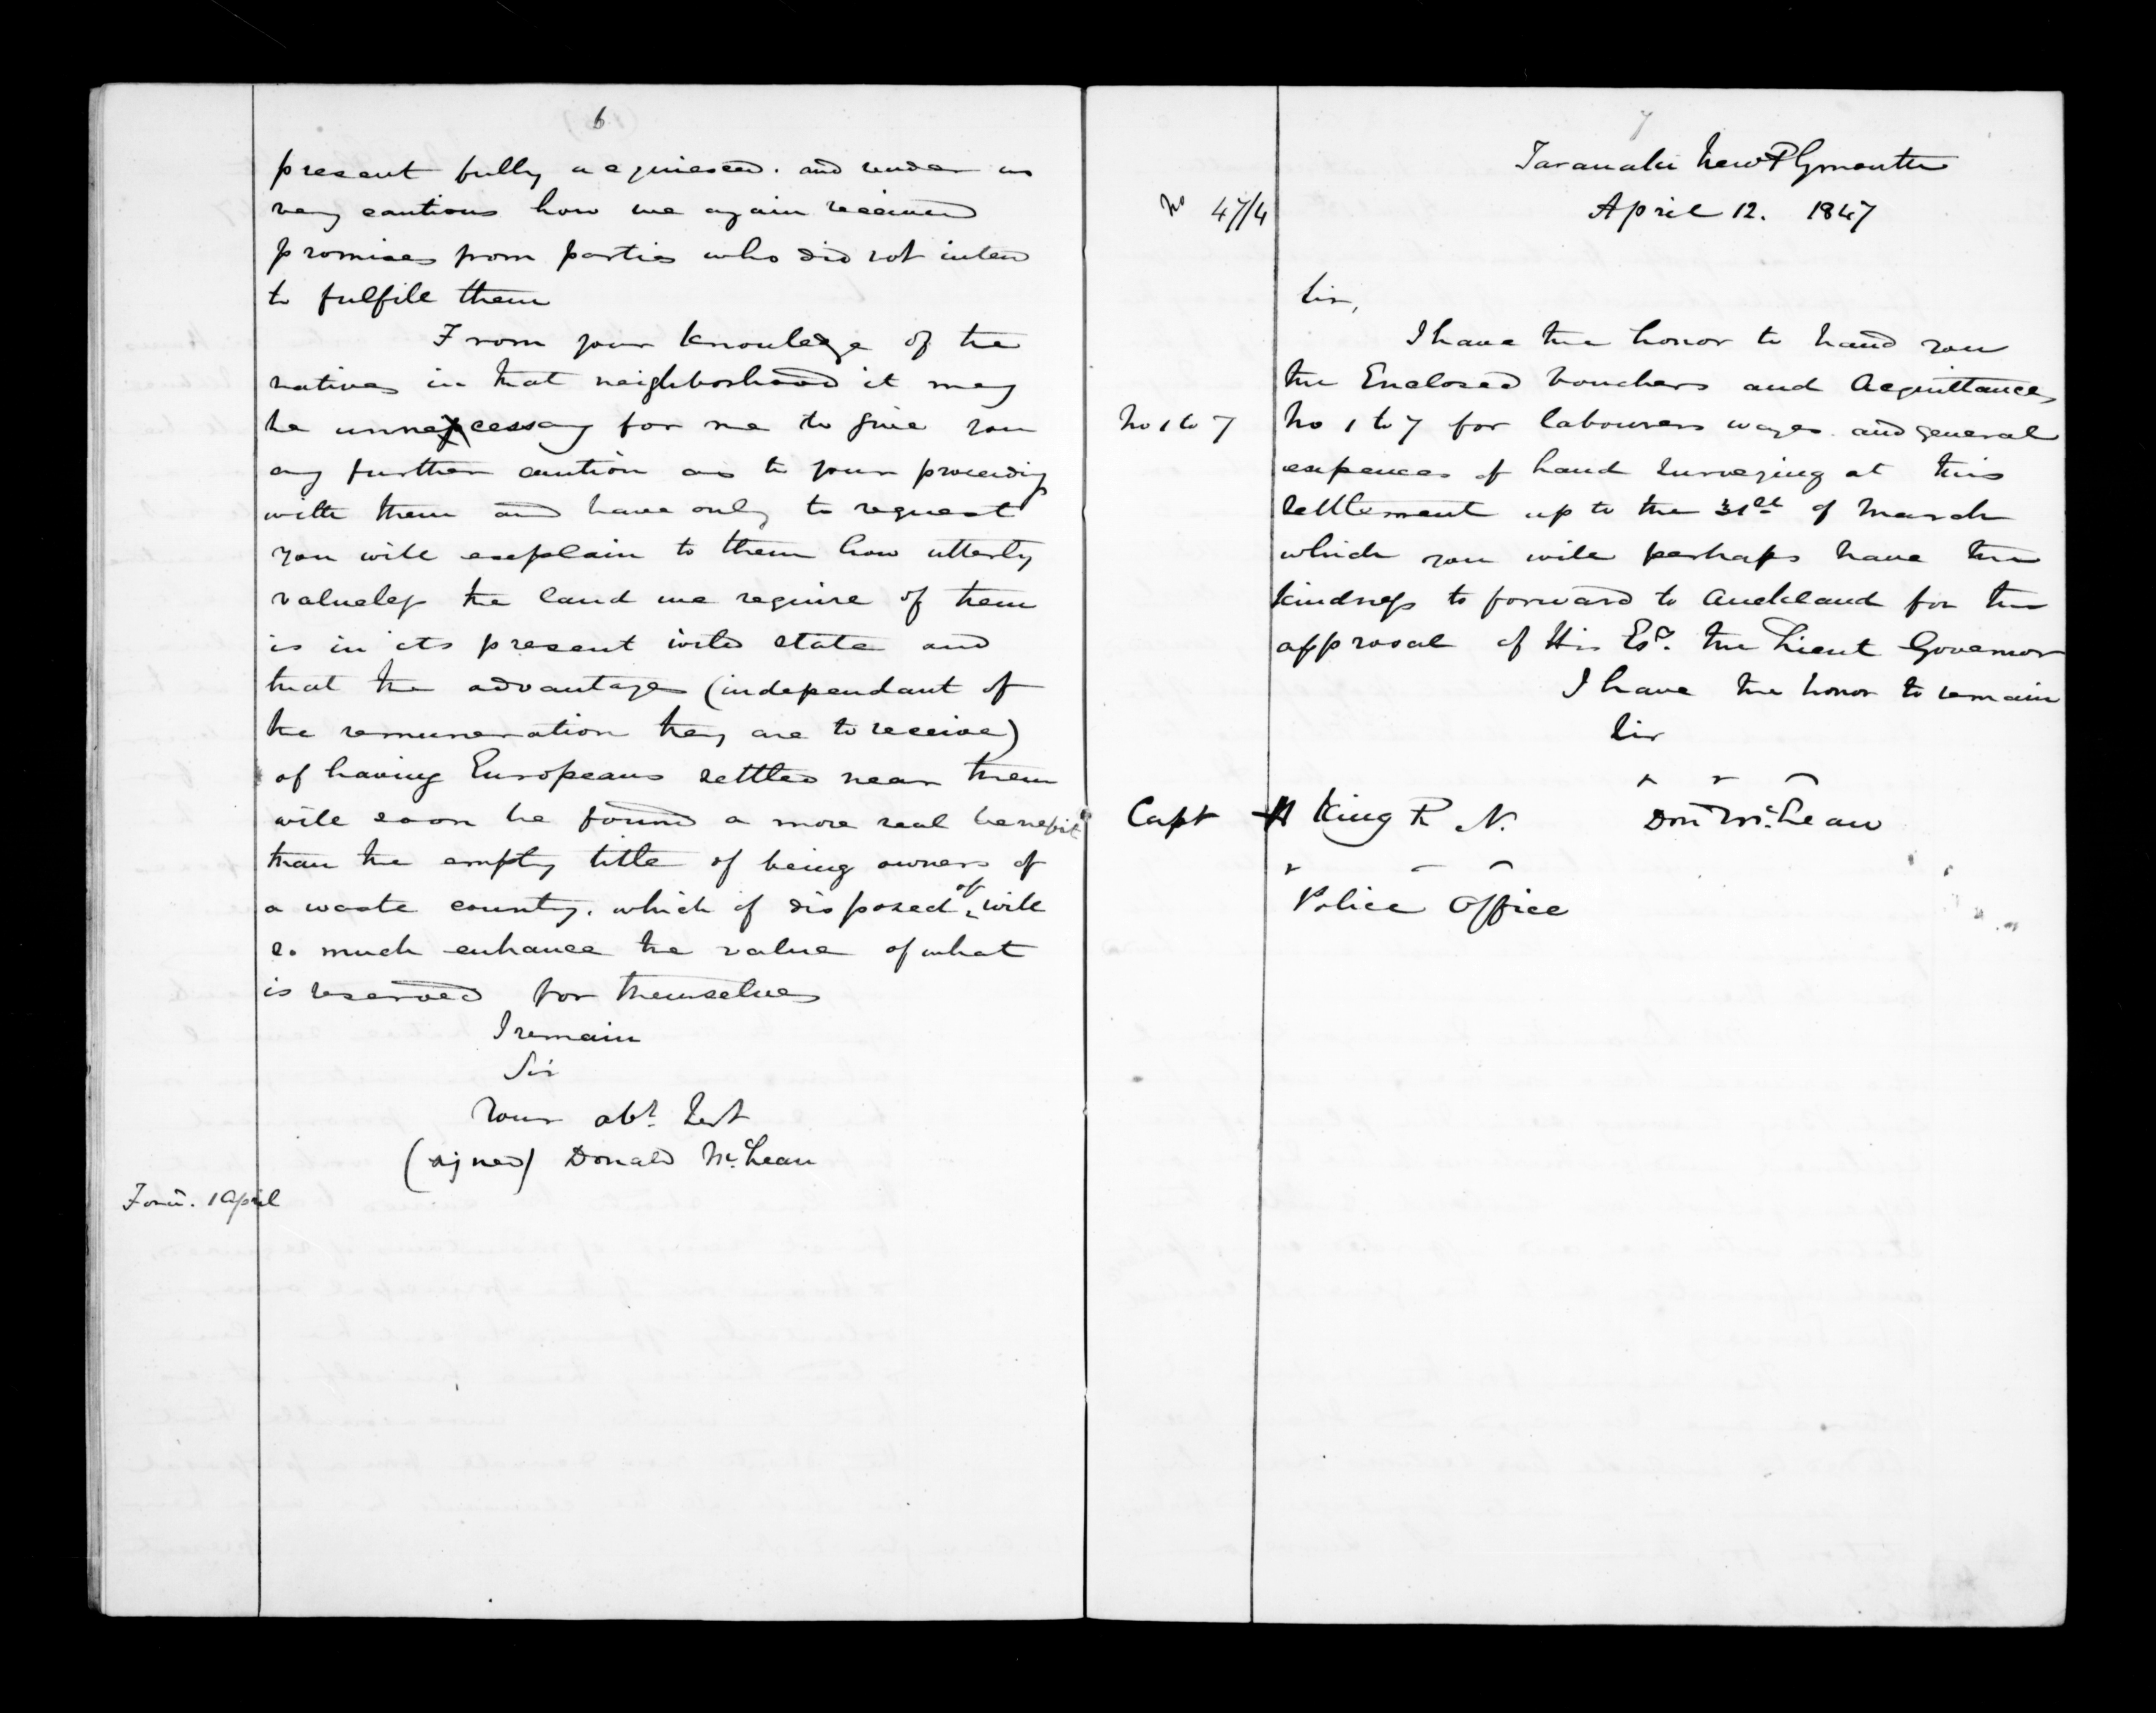 6
present fully acquiesced. and render us
very cautious how we again received
promises from parties who did not intend
to fulfile them
From your knowledge of the
natives in that neighborhood it may
be unnecessary for me to give you
any further caution as to your proceedings
with them and have only to request
you will explain to them how utterly
valueless the land we require of them
is in its present wild state and
that the advantages (independant of
the remuneration they are to receive)
of having Europeans settled near them
will soon be found a more real benefit
than the empty title of being owners of
a waste country. which if disposed of will
so much enhance the value of what
is reserved for themselves
I remain
Sir
Your obt. Servt
(signed) Donald McLean
1 April
7
Taranaki New Plymouth
No 47/4
April 12. 1847
Sir,
I have the honor to hand you
the Enclosed vouchers and Acquittances
No 1 to 7
No 1 to 7 for labourers wages and general
expences of land surveying at this
settlement up to the 31st of March
which you will perhaps have the
kindness to forward to Auckland for the
approval of His Ecy. the Lieut Governor
I have the honor to remain
Sir
Capt H King R N.
Don McLean
Police Office